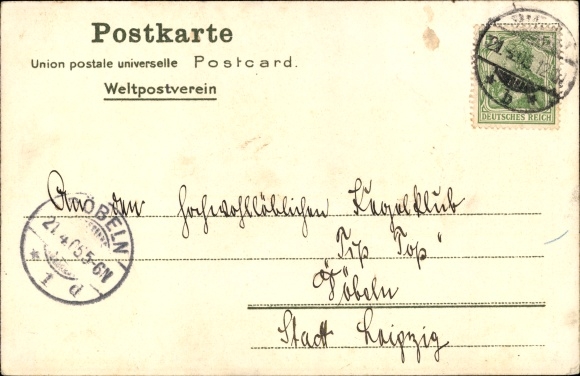 Postkarte
Union postale universelle Postcard.
Weltpostverein
DEUTSCHES REICH
An den Hochwohllöblichen Kegelklub
"Tip Top"
Döbeln
Stadt Leipzig
DÖBELN
21.4.05.5-6N